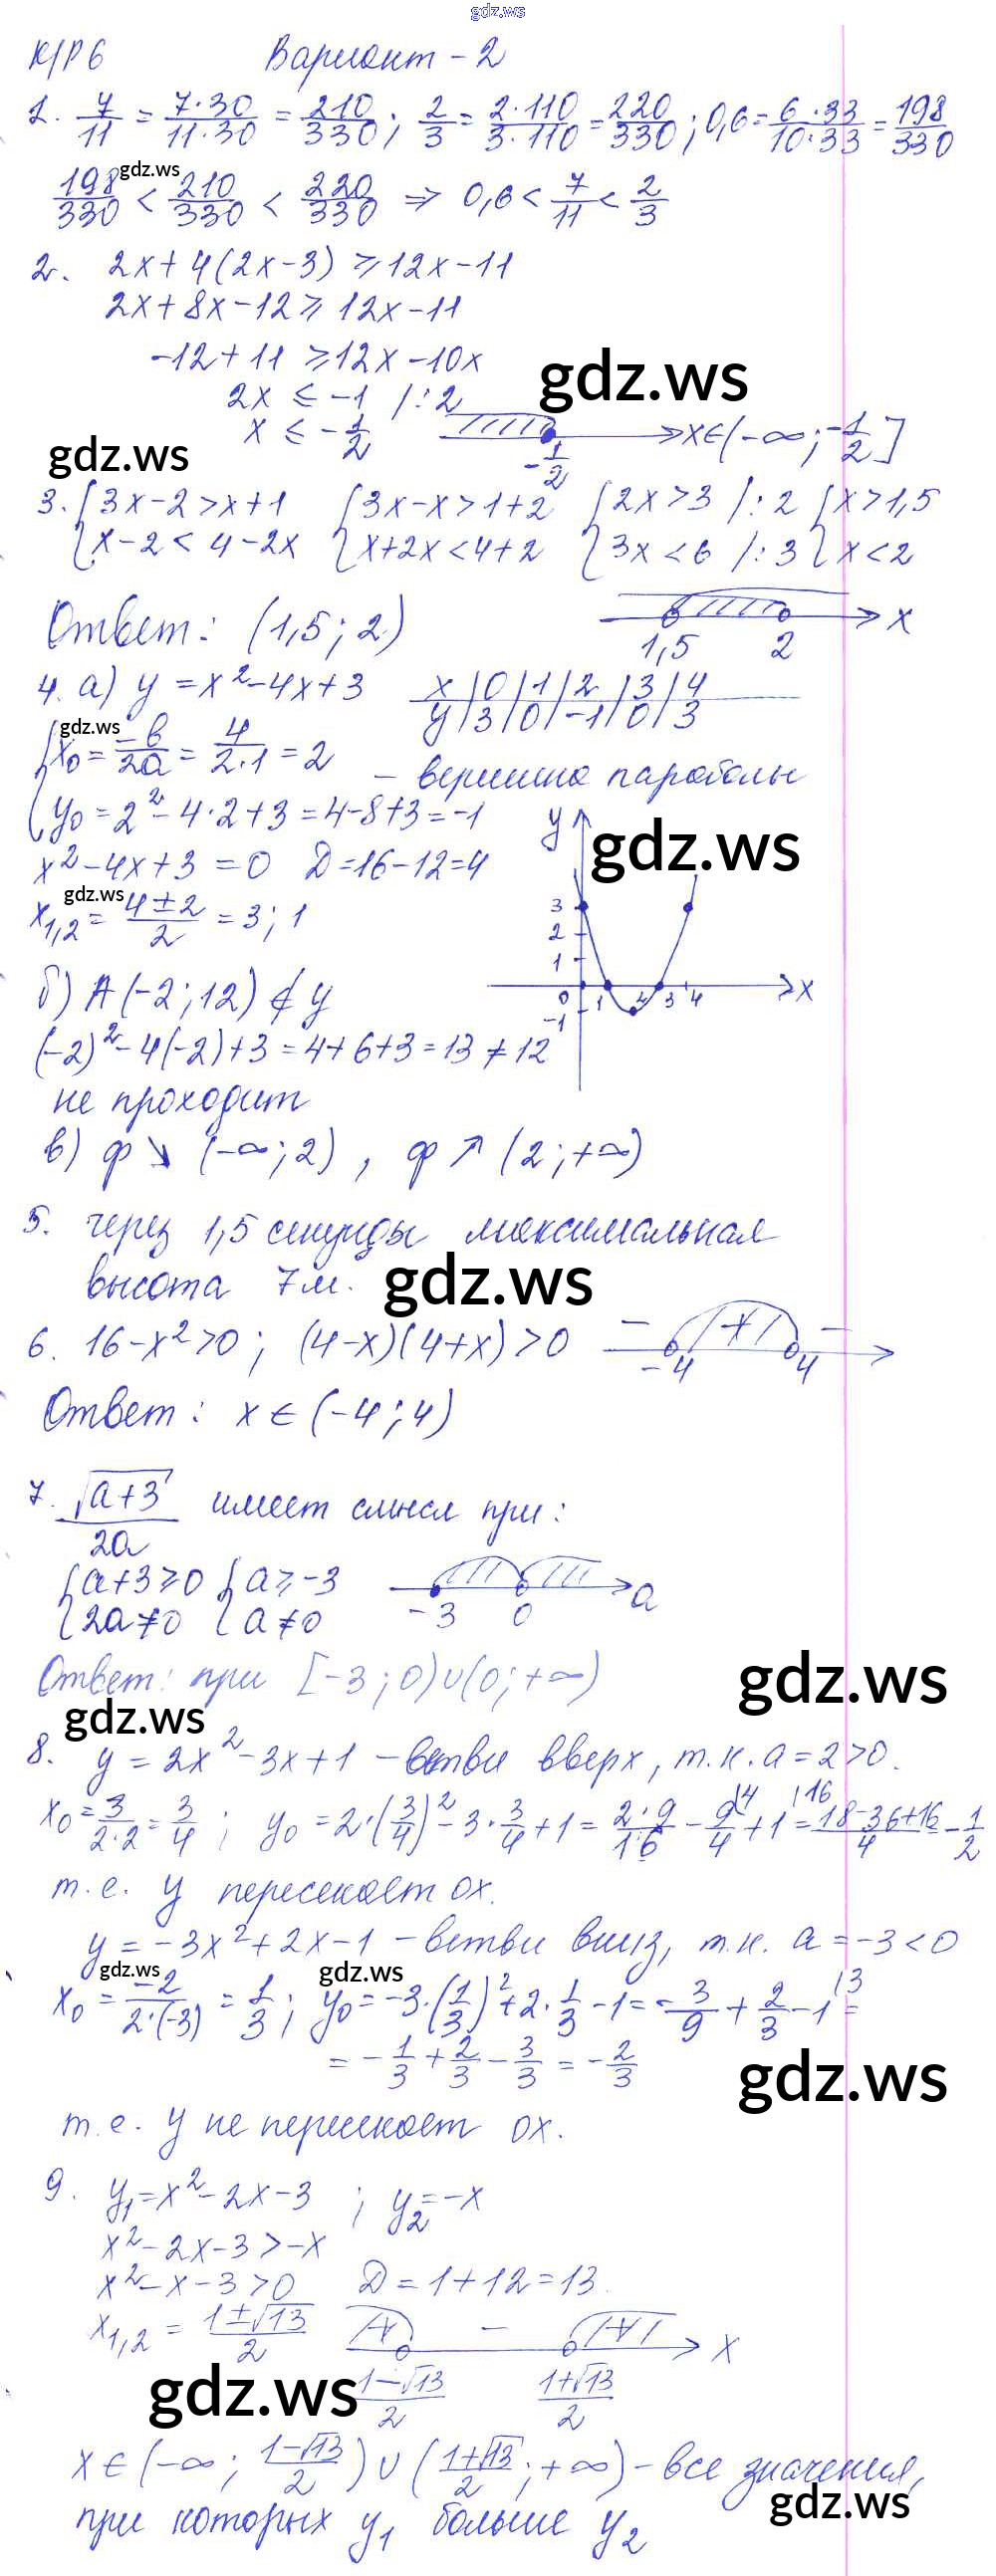 gdz.ws
К/Р 6 Вариант - 2
1. 7/11 = 7·30/11·30 = 210/330 ; 2/3 = 2·110/3·110 = 220/330 ; 0,6 = 6·33/10·33 = 198/330
gdz.ws
198/330 < 210/330 < 220/330 ⇒ 0,6 < 7/11 < 2/3
2. 2x + 4(2x-3) ⩾ 12x - 11
2x + 8x - 12 ⩾ 12x - 11
-12 + 11 ⩾ 12x - 10x
gdz.ws
2x ⩽ -1 /:2
x ⩽ -1/2 -1/2 x∈(-∞; -1/2]
gdz.ws
3. { 3x-2 > x+1 { 3x-x > 1+2 { 2x > 3 /:2 { x > 1,5
x-2 < 4-2x x+2x < 4+2 3x < 6 /:3 x < 2
Ответ: (1,5; 2) 1,5 2 x
4. а) y = x² - 4x + 3 x | 0 | 1 | 2 | 3 | 4
y | 3 | 0 | -1 | 0 | 3
gdz.ws
{ x₀ = -b/2a = 4/2·1 = 2
- вершина параболы
y₀ = 2² - 4·2 + 3 = 4-8+3 = -1
y gdz.ws
x² - 4x + 3 = 0 Д = 16-12 = 4
gdz.ws
x₁,₂ = 4±2/2 = 3; 1
3 2 1 0 -1 1 2 3 4 x
б) A(-2; 12) ∉ y
(-2)² - 4(-2) + 3 = 4+6+3 = 13 ≠ 12
не проходит
в) ф ↘ (-∞; 2) , ф ↗ (2; +∞)
5. через 1,5 секунды максимальная
высота 7м. gdz.ws
6. 16 - x² > 0 ; (4-x)(4+x) > 0 - + - -4 4
Ответ: x ∈ (-4; 4)
7. √a+3/2a имеет смысл при:
{ a+3 ⩾ 0 { a ⩾ -3
2a ≠ 0 a ≠ 0 -3 0 a
Ответ: при [-3; 0)∪(0; +∞) gdz.ws
gdz.ws
8. y = 2x² - 3x + 1 - ветви вверх, т.к. a = 2 > 0.
x₀ = 3/2·2 = 3/4 ; y₀ = 2·(3/4)² - 3·3/4 + 1 = 2·9/16 - 9/4 |4 + 1 |16 = 18-36+16/4 - 1/2
т.е. y пересекает ox.
y = -3x² + 2x - 1 - ветви вниз, т.к. a = -3 < 0
gdz.ws gdz.ws
x₀ = -2/2·(-3) = 1/3 ; y₀ = -3·(1/3)² + 2·1/3 - 1 = -3/9 + 2/3 - 1 |3 =
= -1/3 + 2/3 - 3/3 = -2/3 gdz.ws
т.е. y не пересекает ox.
9. y₁ = x² - 2x - 3 ; y₂ = -x
x² - 2x - 3 > -x
x² - x - 3 > 0 Д = 1 + 12 = 13.
x₁,₂ = 1±√13/2 + - + x
gdz.ws 1-√13/2 1+√13/2
x ∈ (-∞; 1-√13/2) ∪ (1+√13/2; +∞) - все значения,
gdz.ws
при которых y₁ больше y₂